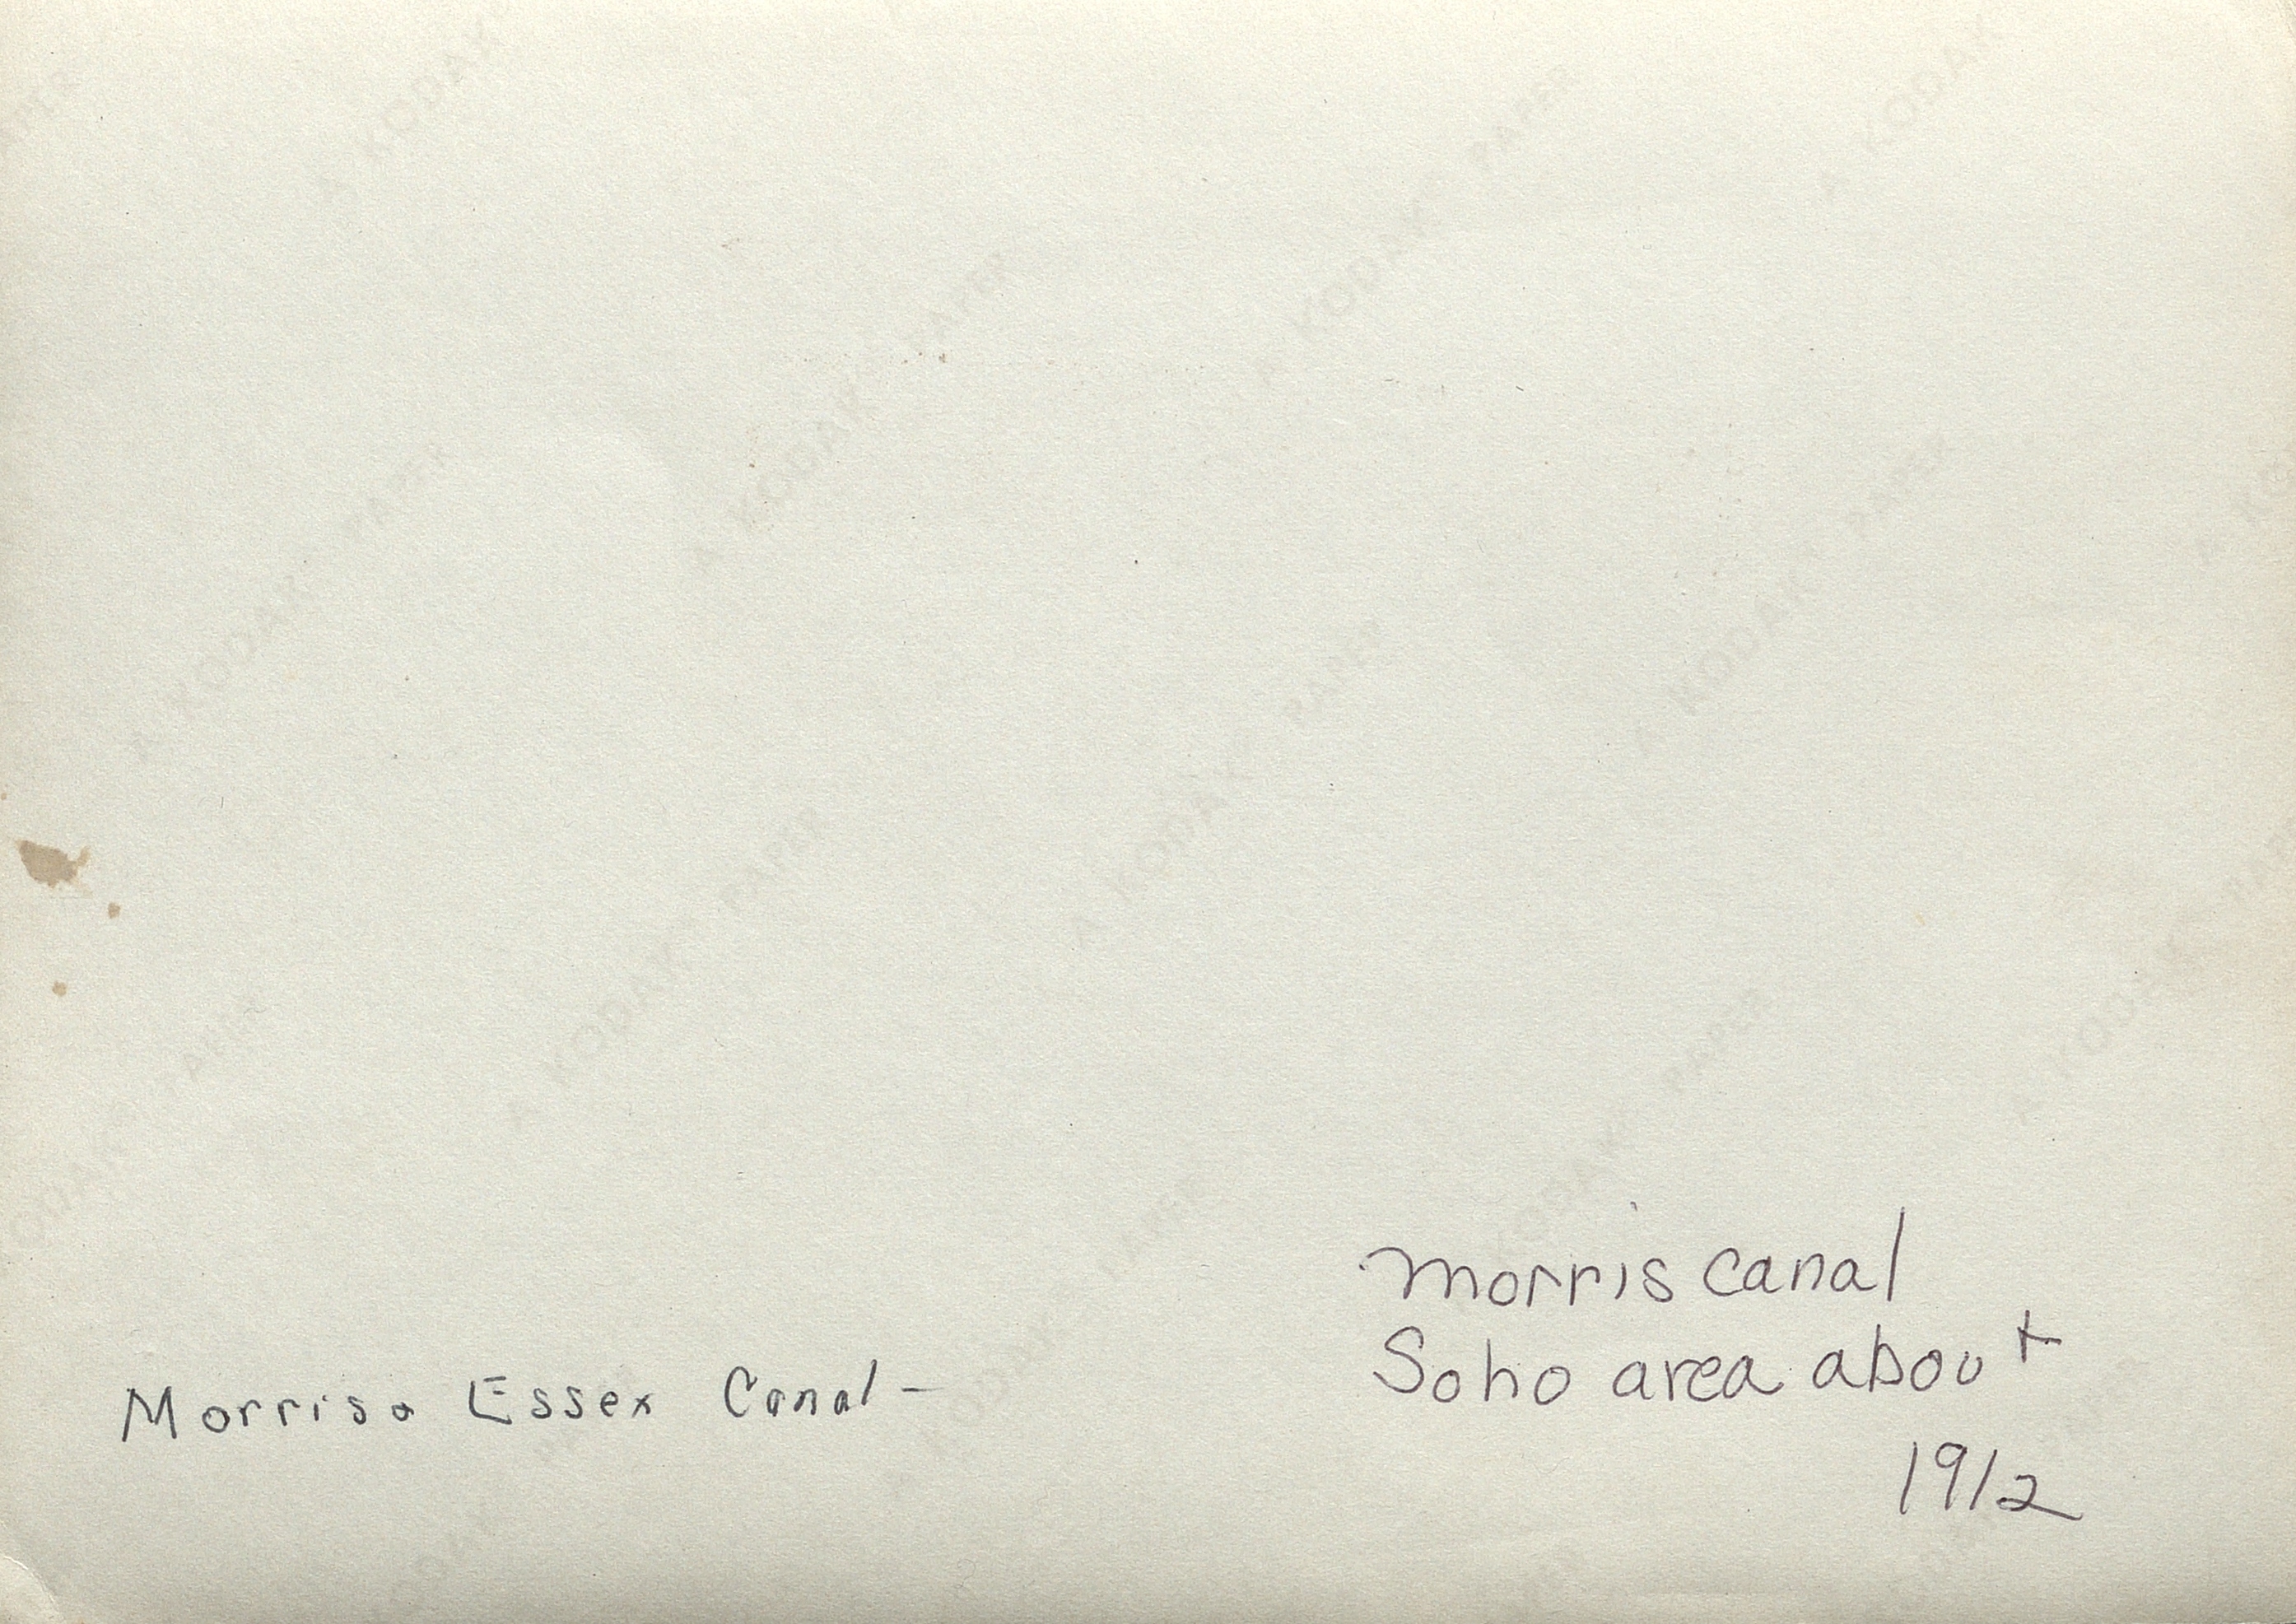 Morris a Essex Canal -
Morris Canal
Soho area about
1912
A KODAK PAPER